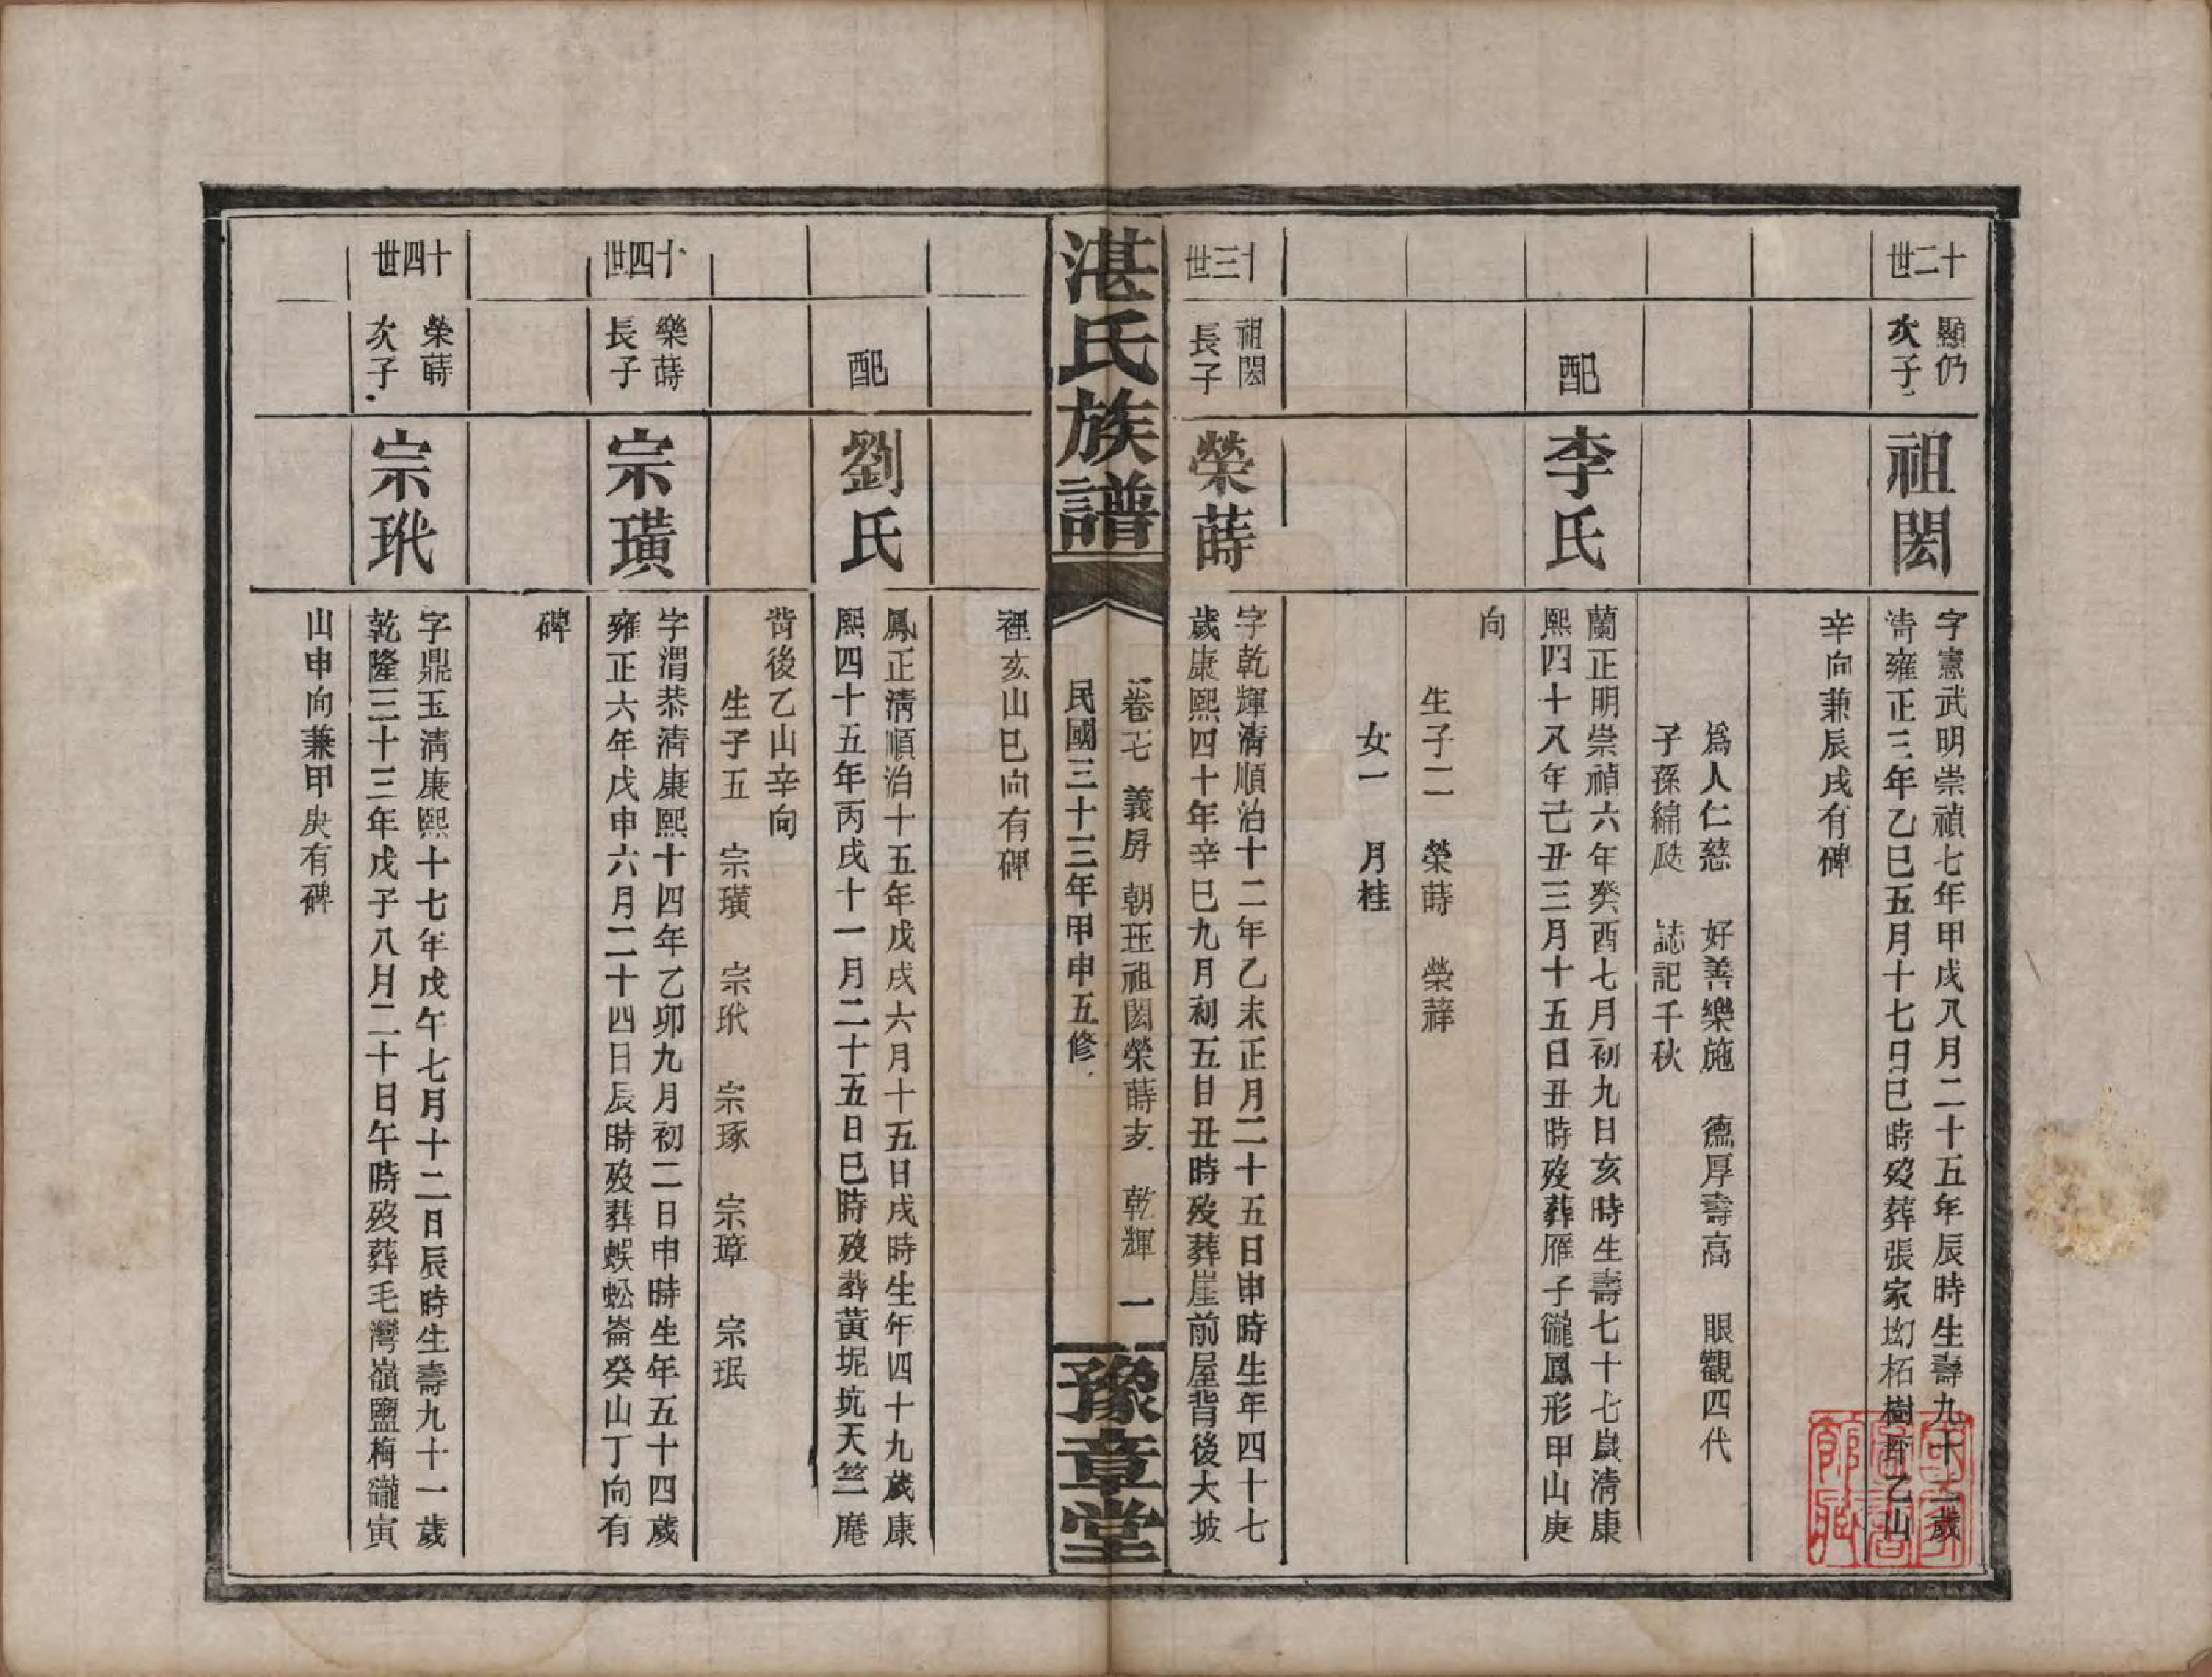 十二世
顯仍
次子
祖閎
字憲武明崇禎七年甲戌八月二十五年辰時生壽九十二歲
清雍正三年乙巳五月十七日巳時歿葬張家坳柘樹
乙山
辛向兼辰戌有碑
為人仁慈 好善樂施 德厚壽高 眼觀四代
子孫綿瓞 誌記千秋
配
李氏
蘭正明崇禎六年癸酉七月初九日亥時生壽七十七歲清康
熙四十八年己丑三月十五日丑時歿葬雁子巃鳳形甲山庚
向
生子二 榮蒔 榮𦽿
女一 月桂
十三世
祖閎
長子
榮蒔
字乾輝清順治十二年乙未正月二十五日申時生年四十七
歲康熙四十年辛巳九月初五日丑時歿葬崖前屋背後大坡
湛氏族譜
卷七 義房 朝珏祖閎榮蒔支 乾輝 一
民國三十三年甲申五修
豫章堂
裡亥山巳向有碑
配
劉氏
鳳正清順治十五年戊戌六月十五日戌時生年四十九歲康
熙四十五年丙戌十一月二十五日巳時歿葬黃坭坑天竺庵
背後乙山辛向
生子五 宗璜 宗玳 宗琢 宗璋 宗珉
十四世
榮蒔
長子
宗璜
字渭恭清康熙十四年乙卯九月初二日申時生年五十四歲
雍正六年戊申六月二十四日辰時歿葬蜈蚣崙癸山丁向有
碑
十四世
榮蒔
次子
宗玳
字鼎玉清康熙十七年戊午七月十二日辰時生壽九十一歲
乾隆三十三年戊子八月二十日午時歿葬毛灣嶺鹽梅巃寅
山申向兼甲庚有碑